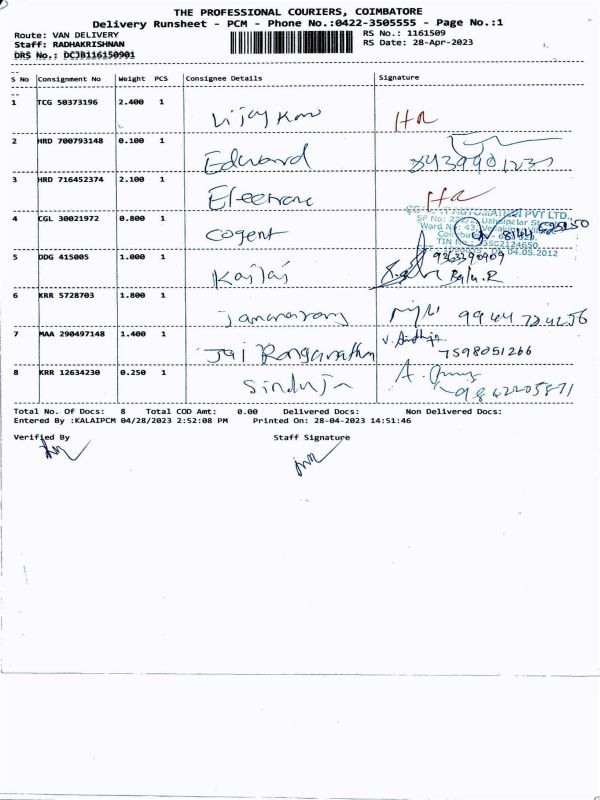 THE PROFESSIONAL COURIERS, COIMBATORE
Delivery Runsheet - PCM - Phone No.:0422-3505555 - Page No.:1
Route: VAN DELIVERY RS No.: 1161509
Staff: RADHAKRISHNAN RS Date: 28-Apr-2023
DRS No.: DCJB116150901
S No Consignment No Weight PCS Consignee Details Signature
1 TCG 50373196 2.400 1
2 HRD 700793148 0.100 1 Edward
3 HRD 716452374 2.100 1
4 CGL 30021972 0.800 1 cogent
PVT LTD.,
04.05.2012
5 DDG 415005 1.000 1 Kailai 9363390909
6 KRR 5728703 1.800 1
7 MAA 290497148 1.400 1 Jai Ranganathan
7598051266
8 KRR 12634230 0.250 1 Sinduja
9842205871
Total No. Of Docs: 8 Total COD Amt: 0.00 Delivered Docs: Non Delivered Docs:
Entered By :KALAIPCM 04/28/2023 2:52:08 PM Printed On: 28-04-2023 14:51:46
Verified By Staff Signature